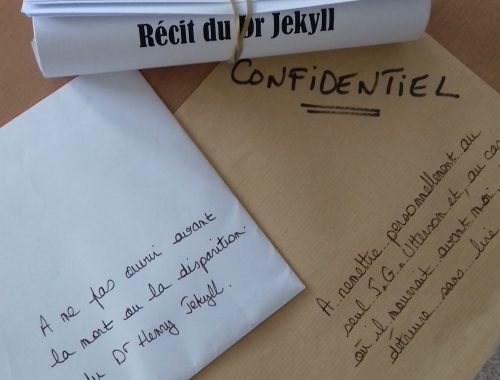 Récit du Dr Jekyll
CONFIDENTIEL
A remettre personnellement au
seul J.G. Utterson et, au cas
où il mourait avant moi,
détruire sans lire
A ne pas ouvrir avant
la mort ou la disparition
du Dr Henry Jekyll.